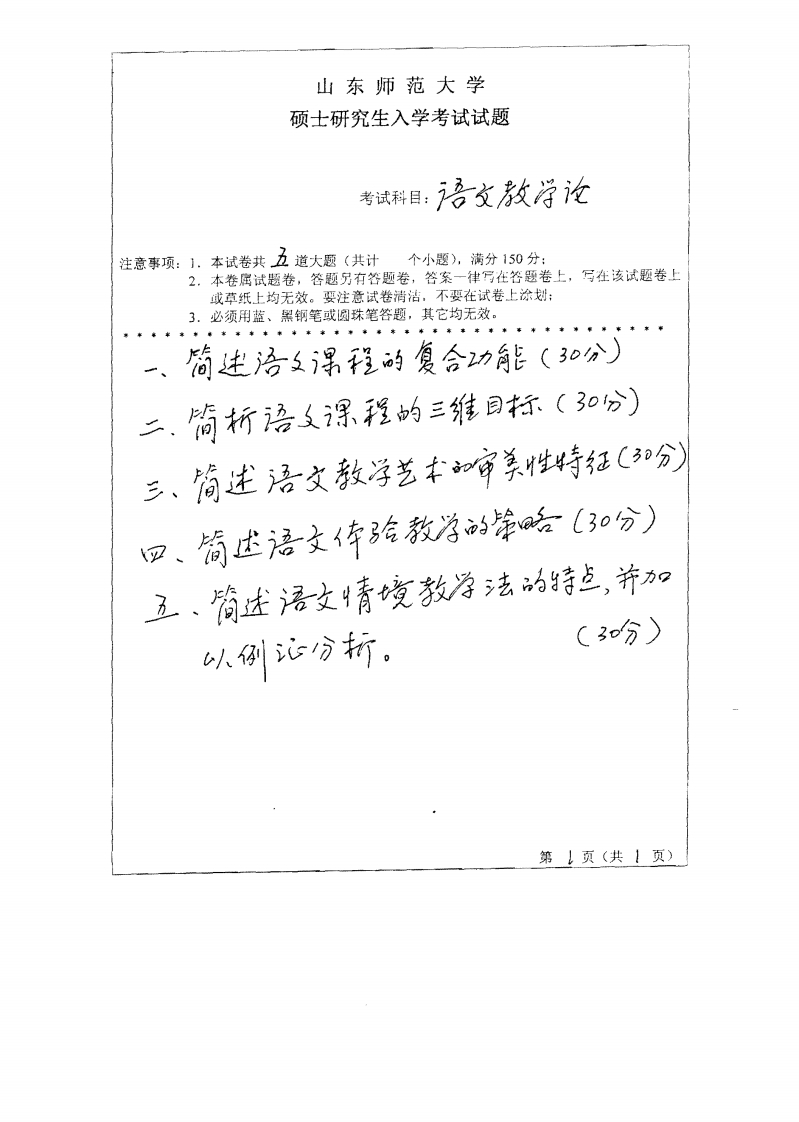 山东师范大学
硕士研究生入学考试试题
考试科目：语文教学论
注意事项：1．本试卷共 五 道大题（共计　　个小题），满分 150 分；
2．本卷属试题卷，答题另有答题卷，答案一律写在答题卷上，写在该试题卷上
或草纸上均无效。要注意试卷清洁，不要在试卷上涂划；
3．必须用蓝、黑钢笔或圆珠笔答题，其它均无效。
* * * * * * * * * * * * * * * * * * * * * * * * * * * * * * * * * * * * * * *
一、简述语文课程的复合功能（30分）
二、简析语文课程的三维目标（30分）
三、简述语文教学艺术的审美性特征（30分）
四、简述语文体验教学的策略（30分）
五、简述语文情境教学法的特点，并加
以例证分析。（30分）
第 1 页（共 1 页）